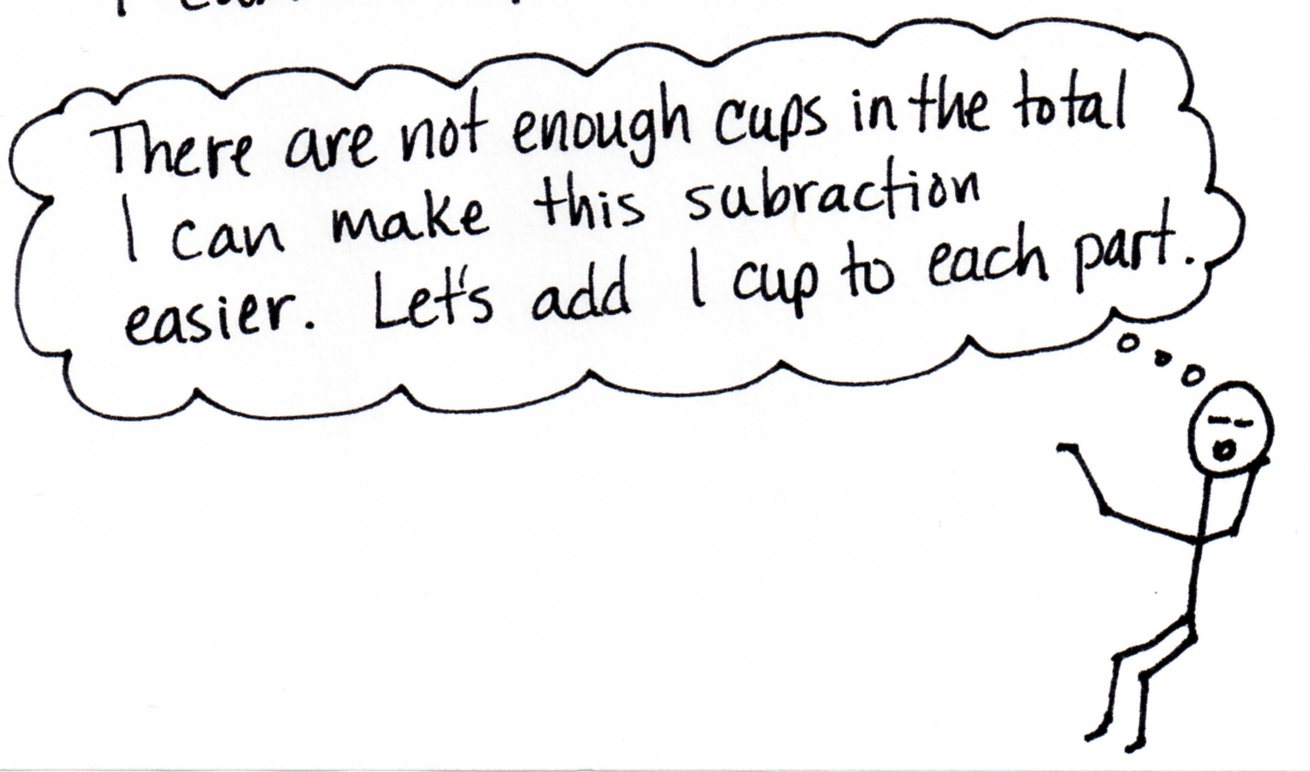 There are not enough cups in the total
I can make this subraction
easier. Let's add 1 cup to each part.